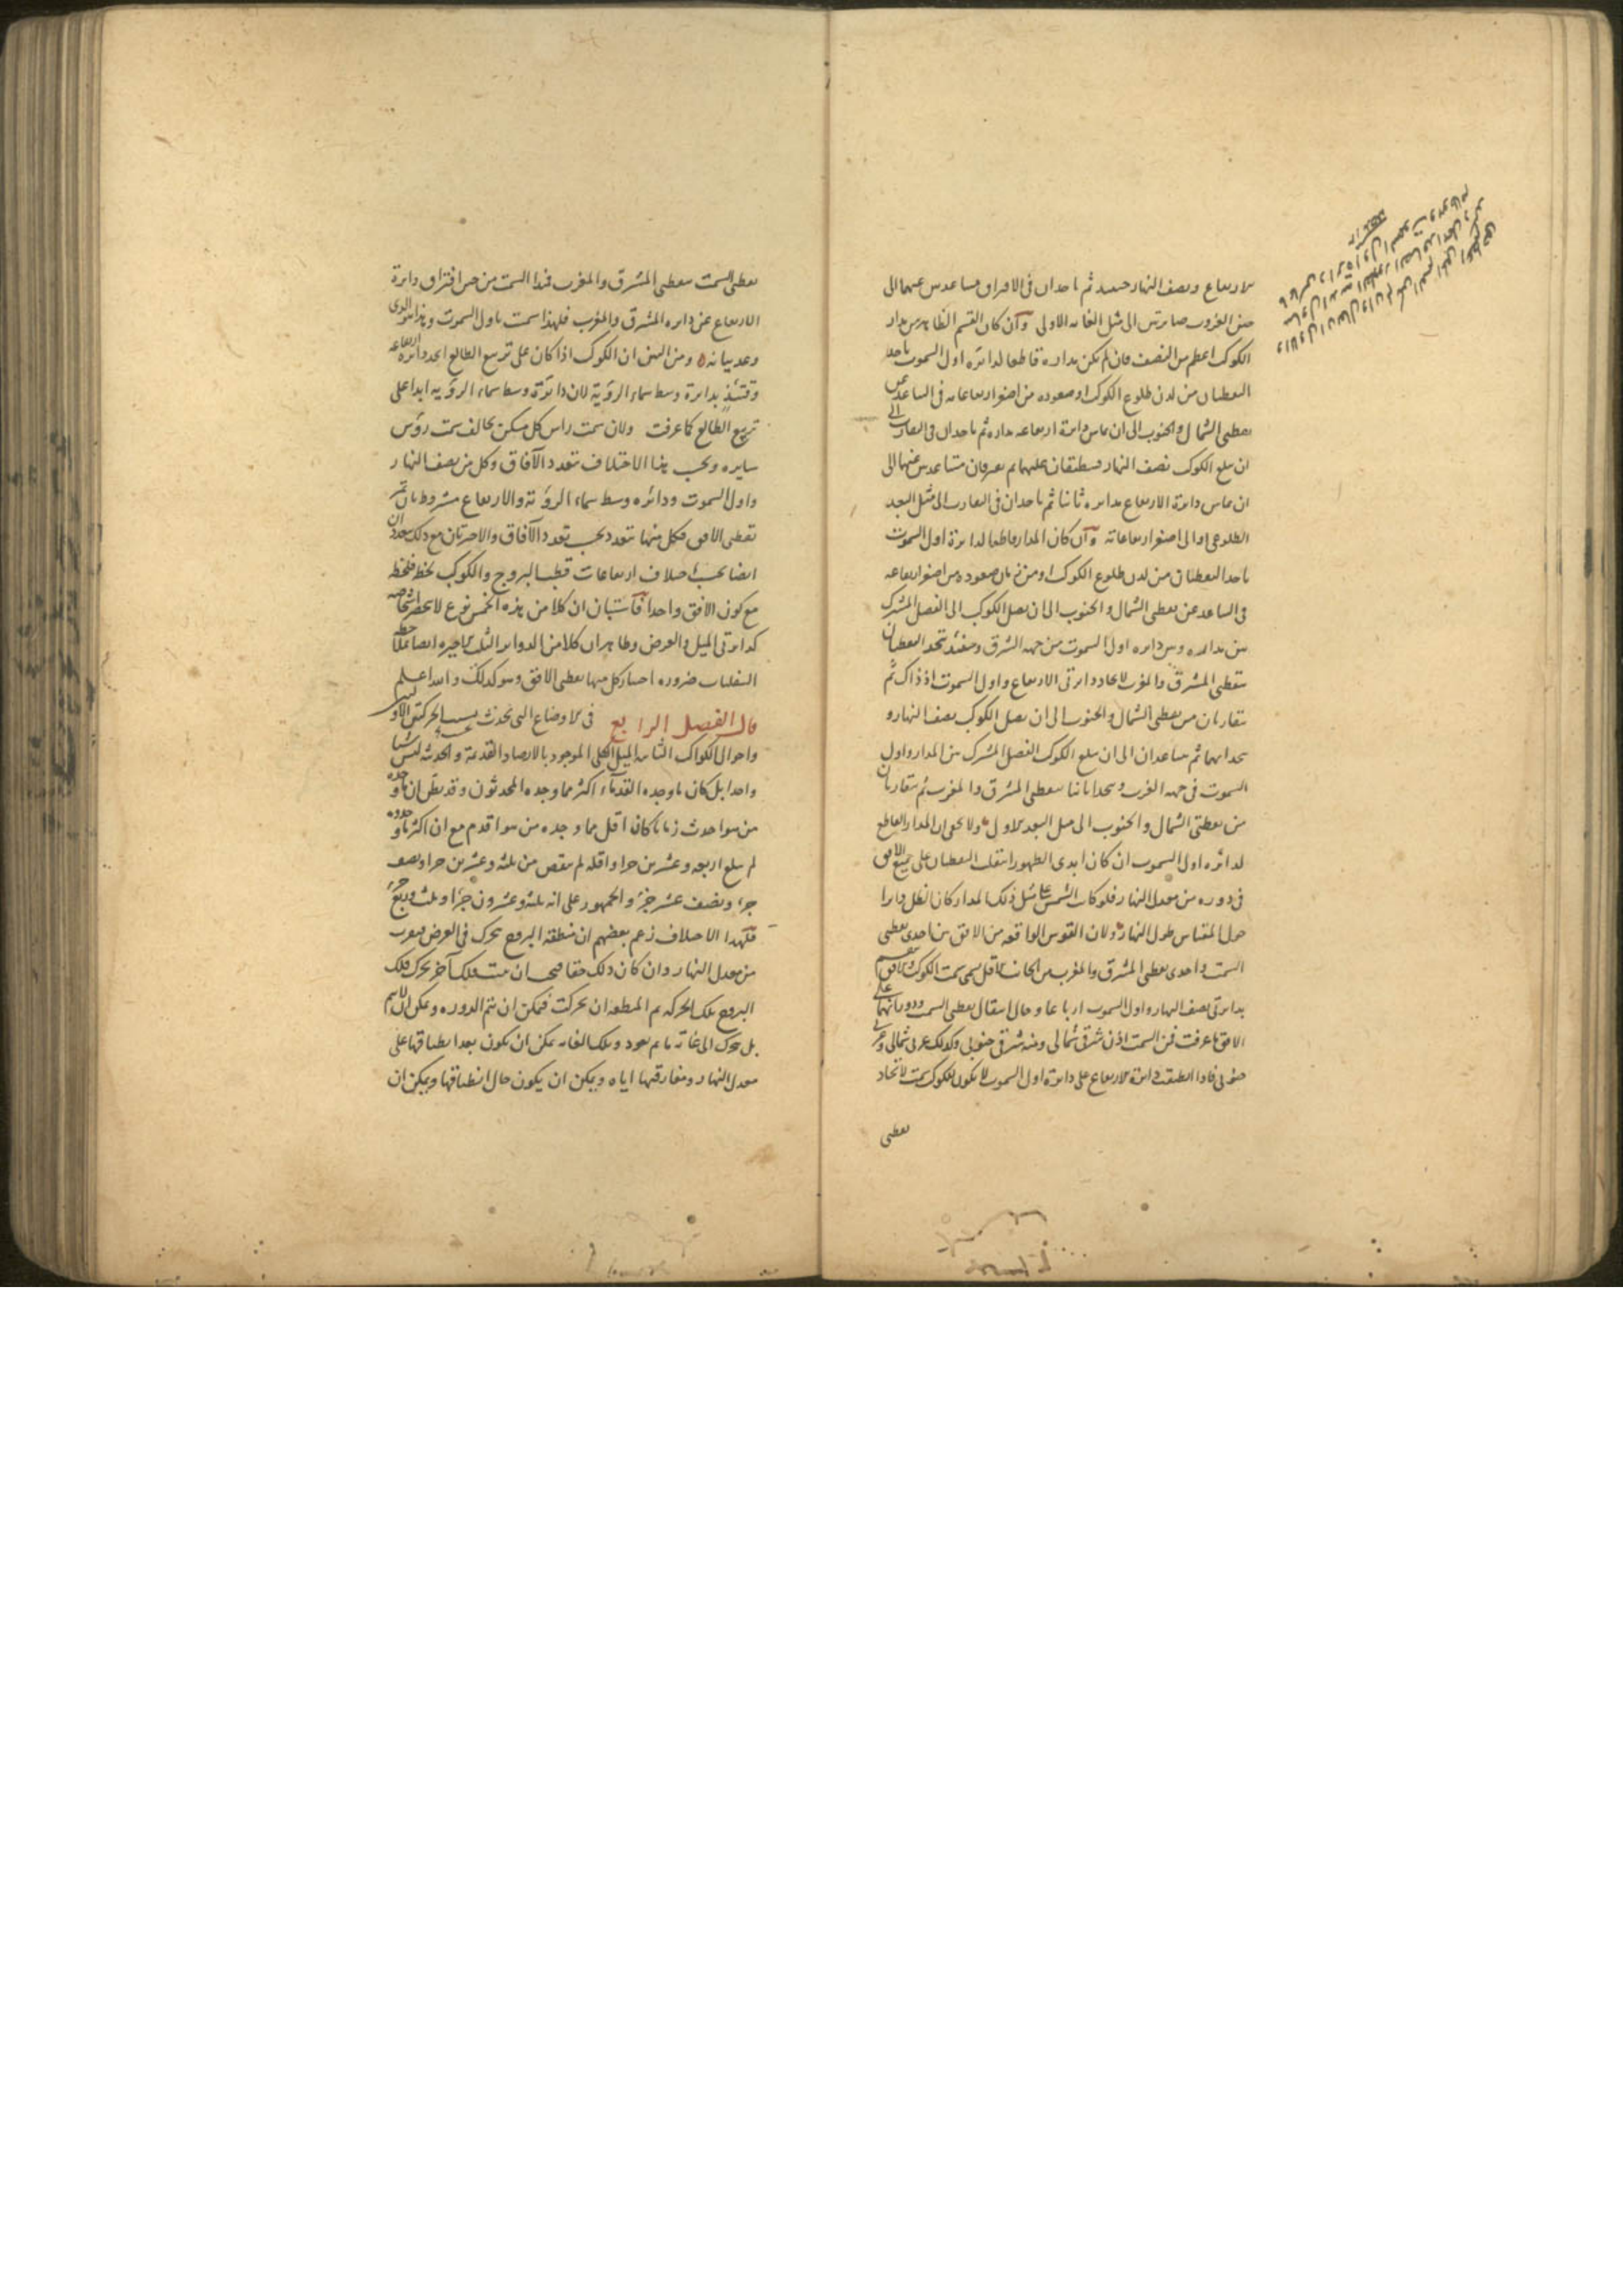 الارتفاع ونصف النهار حينئذ ثم ياخذان فى الافتراق متباعدتين عنهما الى
حين الغروب صائرتين الى مثل الغاية الاولى وآن كان القسم الظاهر من مدار
الكوكب اعظم من النصف فان لم يكن مداره قاطعا لدائرة اول السموت ياخذ
النقطتان من لدن طلوع الكوكب او صعوده من اصغر ارتفاعاته فى التباعد عن
نقطتى الشمال والجنوب الى ان يماس دائرة ارتفاعه مداره ثم ياخذان فى التقارب الى
ان يبلغ الكوكب نصف النهار فينطبقان عليهما ثم يفترقان متباعدتين عنهما الى
ان يماس دائرة الارتفاع مداره ثانيا ثم ياخذان فى التقارب الى مثل البعد
الطلوعى او الى اصغر ارتفاعاته وآن كان المدار قاطعا لدائرة اول السموت
ياخذ النقطتان من لدن طلوع الكوكب او من زمان صعوده من اصغر ارتفاعه
فى التباعد عن نقطتى الشمال والجنوب الى ان يصل الكوكب الى الفصل المشترك
بين مداره وبين دائرة اول السموت من جهة الشرق وحينئذ تتحد النقطتان
بنقطتى المشرق والمغرب لاتحاد دائرتى الارتفاع واول السموت اذ ذاك ثم
يتقاربان من نقطتى الشمال والجنوب الى ان يصل الكوكب نصف النهار و
يتحد بهما ثم يتباعدان الى ان يبلغ الكوكب الفصل المشترك بين المدار واول
السموت فى جهة الغرب ويتحدا ثانيا بنقطتى المشرق والمغرب ثم يتقاربان
من نقطتى الشمال والجنوب الى مثل البعد الاول ولا يخفى ان المدار القاطع
لدائرة اول السموت ان كان ابدى الظهور انتقلت النقطتان على جميع الافق
فى دوره من معدل النهار فلو كانت الشمس على مثل ذلك المدار كان الظل دائرا
حول المقياس طول النهار ولان القوس الواقعة من الافق بين احدى نقطتى
السمت واحدى نقطتى المشرق والمغرب من الجانب الاقل يسمى سمت الكوكب والافق ينقسم
بدائرتى نصف النهار واول السموت ارباعا وحال انتقال نقطتى السمت ودورانهما على
الافق ما عرفت فمن السمت اذن شرقى شمالى ومنه شرقى جنوبى وكذلك غربى شمالى وغربى
جنوبى فاذا انطبقت دائرة الارتفاع على دائرة اول السموت لا يكون للكوكب سمت لاتحاد
نقطتى
نقطتى السمت بنقطتى المشرق والمغرب فبدا السمت من حين افتراق دائرة
الارتفاع عن دائرة المشرق والمغرب فلهذا سميت باول السموت وهذا هو الذى
وعد بيانه ومن البين ان الكوكب اذا كان على تربيع الطالع اتحد دائرة ارتفاعه
وقتئذ بدائرة وسط سماء الرؤية لان دائرة وسط سماء الرؤية ابدا على
تربيع الطالع كما عرفت ولان سمت راس كل مسكن يخالف سمت رؤس
سايره وبحسب هذا الاختلاف تتعدد الآفاق وكل من نصف النهار
واول السموت ودائرة وسط سماء الرؤية والارتفاع مشروط بان تمر
بقطبى الافق فكل منها يتعدد بحسب تعدد الآفاق والاخيرتان مع ذلك تتعددان
ايضا بحسب اختلاف ارتفاعات قطب البروج والكوكب لحظة فلحظة
مع كون الافق واحدا فآستبان ان كلا من هذه الخمس نوع لا ينحصر اشخاصه
كدائرتى الميل والعرض وظاهر ان كلا من الدوائر الثلث الاخيرة ايضا
ضرورة اجتياز كل منها بقطبى الافق وهو كذلك والله اعلم
قال الفصل الرابع فى الاوضاع التى تحدث بسبب الحركتين الاوليين
واحوال الكواكب الثابتة الميل الكلى الموجود بالارصاد القديمة والحديثة ليس شيئا
واحدا بل كان ما وجده القدماء اكثر مما وجده المحدثون وقد يظن ان ما وجده
من هو احدث زمانا كان اقل مما وجده من هو اقدم مع ان اكثر ما وجدوه
لم يبلغ اربعة وعشرين جزءا واقله لم ينقص من ثلثة وعشرين جزءا ونصف
جزء ونصف عشر جزء والجمهور على انه ثلثة وعشرون جزءا وثلث وربع جزء
فلهذا الاختلاف زعم بعضهم ان منطقة البروج تتحرك فى العرض فتقرب
من معدل النهار وان كان ذلك حقا فيجب ان يثبت فلك آخر يحرك فلك
البروج تلك الحركة ثم المنطقة ان تحركت فيمكن ان تتم الدورة ويمكن ان لا تتم
بل تتحرك الى غاية ما ثم تعود وتلك الغاية يمكن ان تكون بعد انطباقها على
معدل النهار ومفارقتها اياه ويمكن ان يكون حال انطباقها ويمكن ان